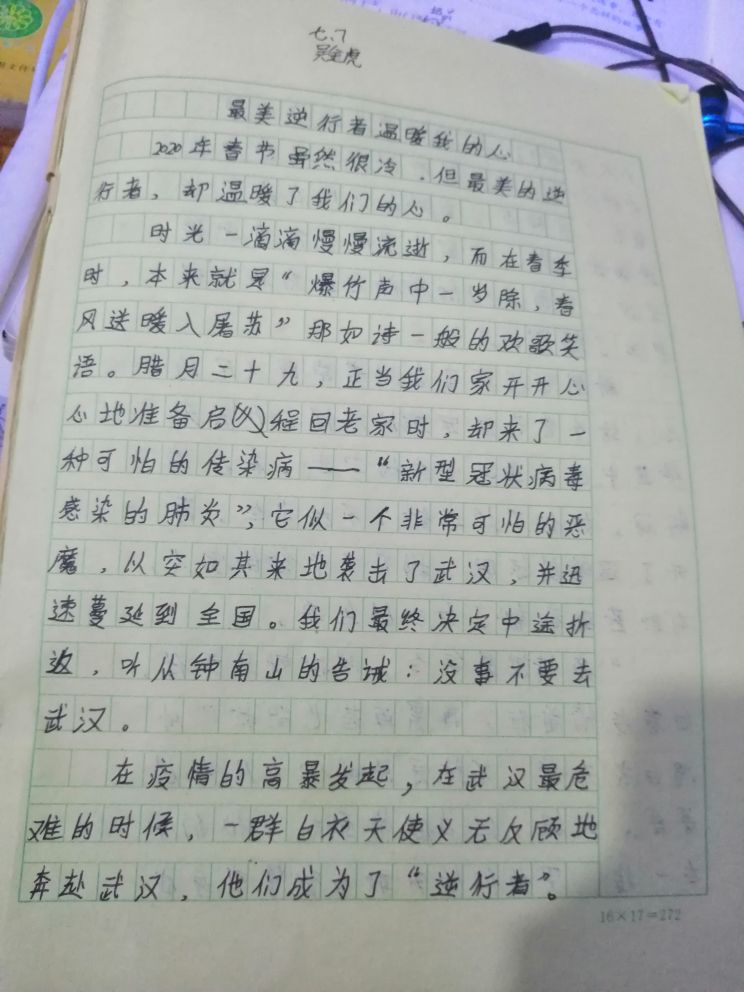 七、7
吴全虎
最美逆行者温暖我的心
2020年春节虽然很冷，但最美的逆
行者，却温暖了我们的心。
时光一滴滴慢慢流逝，而在春季
时，本来就是“爆竹声中一岁除，春
风送暖入屠苏”那如诗一般的欢歌笑
语。腊月二十九，正当我们家开开心
心地准备启程回老家时，却来了一
种可怕的传染病——“新型冠状病毒
感染的肺炎”，它似一个非常可怕的恶
魔，从突如其来地袭击了武汉，并迅
速蔓延到全国。我们最终决定中途折
返，听从钟南山的告诫：没事不要去
武汉。
在疫情的高暴发起，在武汉最危
难的时候，一群白衣天使义无反顾地
奔赴武汉，他们成为了“逆行者”。
16×17=272